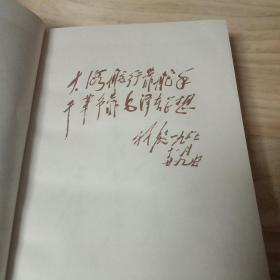 大海航行靠舵手
干革命靠毛泽东思想
林彪 一九六七